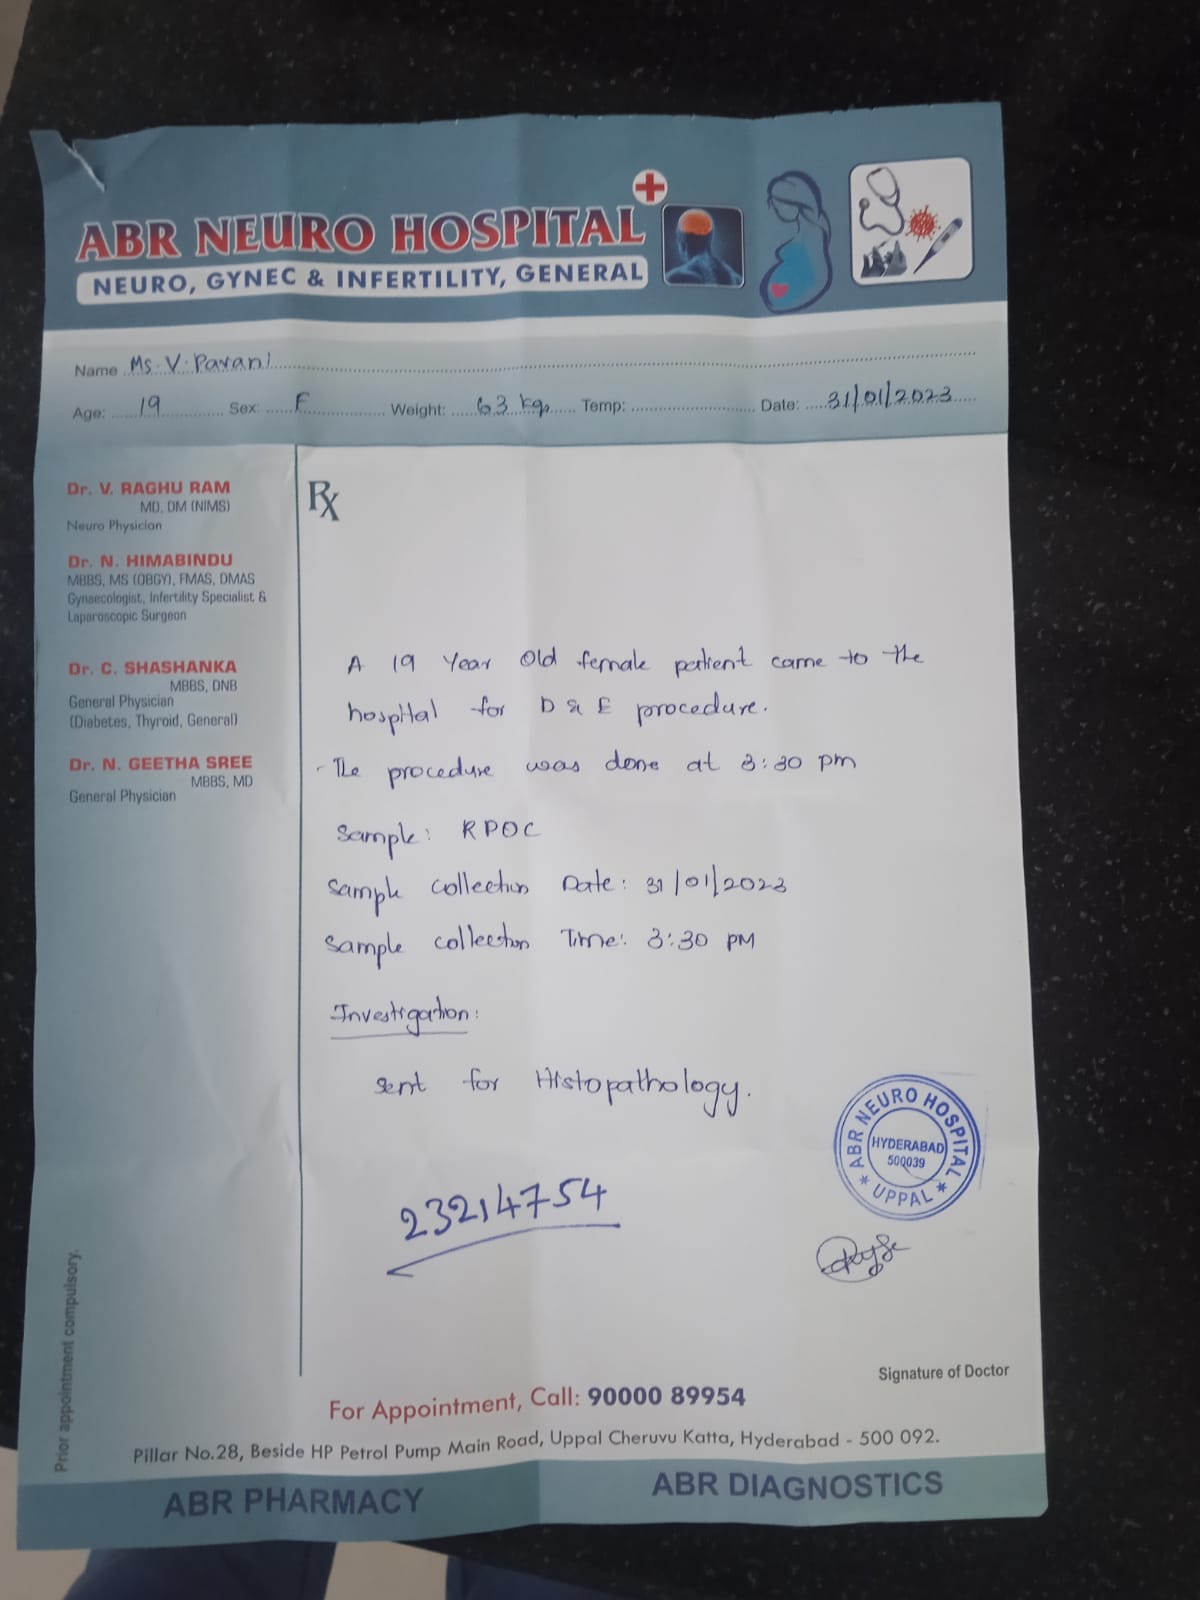 ABR NEURO HOSPITAL
NEURO, GYNEC & INFERTILITY, GENERAL
Name Ms. V. Pavani
Age: 19 Sex: F Weight: 63 kgs Temp: Date: 31/01/2023
Dr. V. RAGHU RAM
MD, DM (NIMS)
Neuro Physician
Dr. N. HIMABINDU
MBBS, MS (OBGY), FMAS, DMAS
Gynaecologist, Infertility Specialist &
Laparoscopic Surgeon
Dr. C. SHASHANKA
MBBS, DNB
General Physician
(Diabetes, Thyroid, General)
Dr. N. GEETHA SREE
MBBS, MD
General Physician
Prior appointment compulsory.
Rx
A 19 Year Old female patient came to the
hospital for D & E procedure.
- The procedure was done at 3:30 pm
Sample: RPOC
Sample collection Date: 31/01/2023
Sample collection Time: 3:30 PM
Investigation:
Sent for Histopathology.
23214754
ABR NEURO HOSPITAL
HYDERABAD
500039
* UPPAL *
Signature of Doctor
For Appointment, Call: 90000 89954
Pillar No.28, Beside HP Petrol Pump Main Road, Uppal Cheruvu Katta, Hyderabad - 500 092.
ABR PHARMACY ABR DIAGNOSTICS